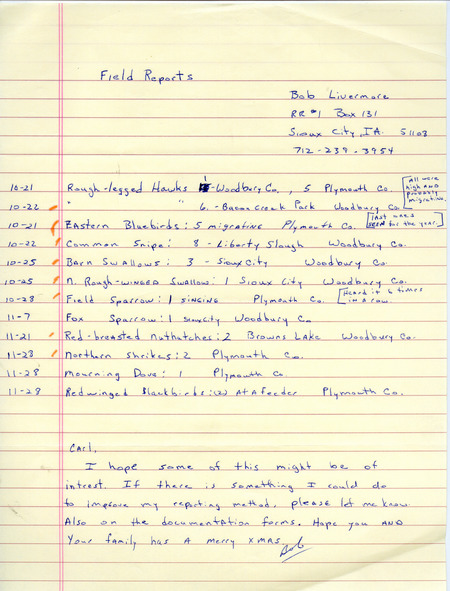 Field Reports
Bob Livermore
RR #1 Box 131
Sioux City, IA. 51108
712-239-3954
10-21 Rough-legged Hawks 1-Woodbury Co., 5 Plymouth Co. [All were high AND probably migrating.
10-22 " " 6.-Bacon Creek Park Woodbury Co.
10-21 Eastern Bluebirds: 5 migrating Plymouth Co. [last ones SEEN for the year.]
10-22 Common Snipe: 8 - Liberty Slough Woodbury Co.
10-25 Barn Swallows: 3 - Sioux City Woodbury Co.
10-25 N. Rough-winged Swallow: 1 Sioux City Woodbury Co.
10-28 Field Sparrow: 1 singing Plymouth Co. [Heard it 6 times in a row.
11-7 Fox Sparrow: 1 Sioux City Woodbury Co
11-21 Red-breasted Nuthatches: 2 Browns Lake Woodbury Co.
11-23 Northern Shrikes: 2 Plymouth Co.
11-28 Mourning Dove: 1 Plymouth Co
11-29 Redwinged Blackbirds: (2) At A feeder Plymouth Co.
Carl,
I hope some of this might be of
intrest. If there is something I could do
to improve my reporting method, please let me know.
Also on the documentation forms. Hope you AND
Your family has A merry XMAS.
Bob